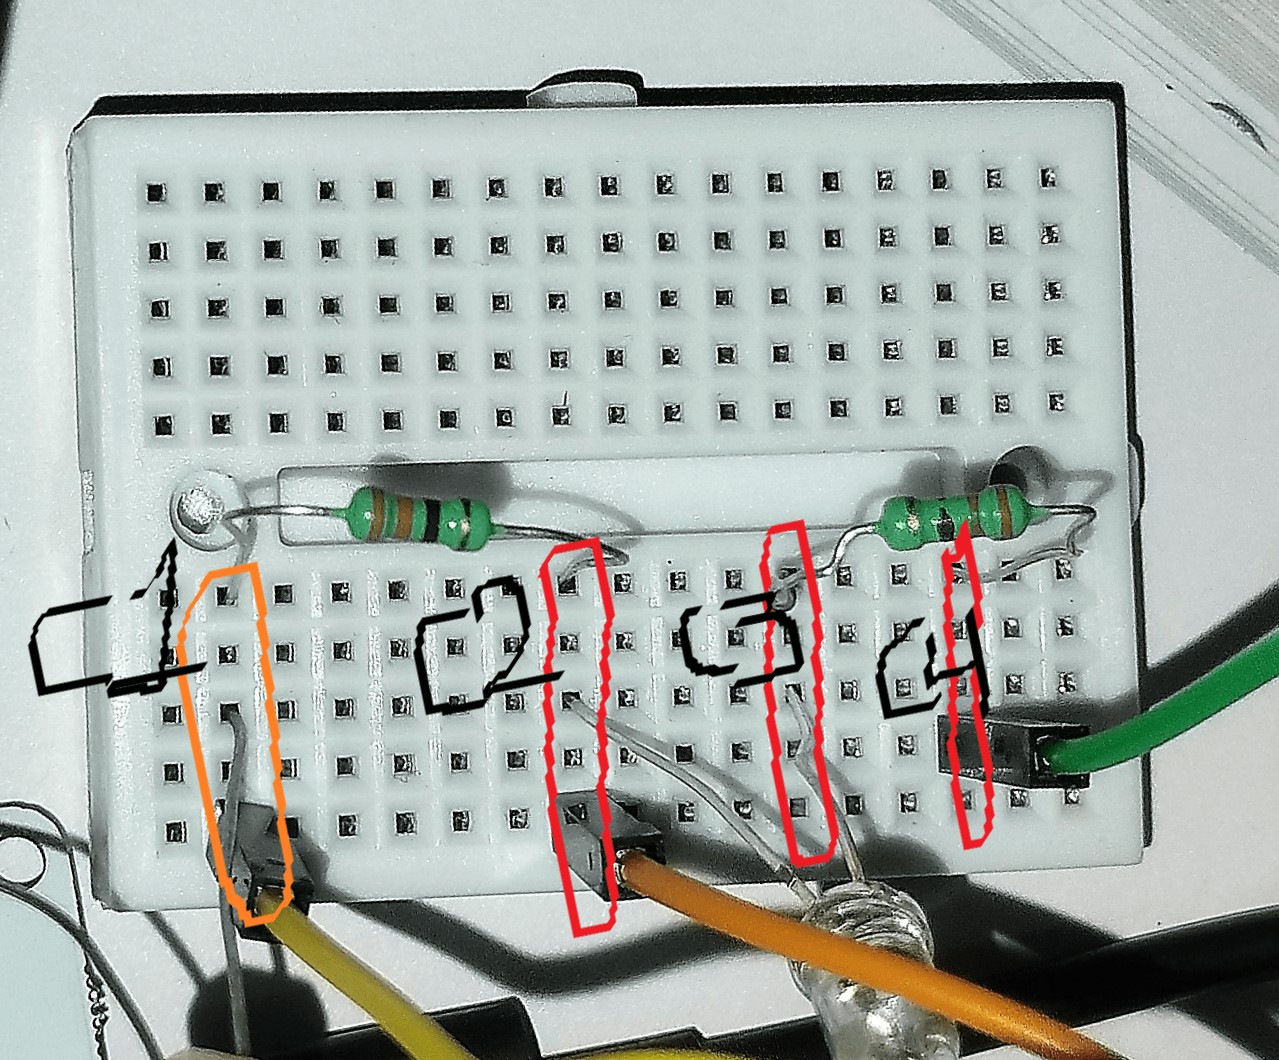 C1
C2
C3
C4